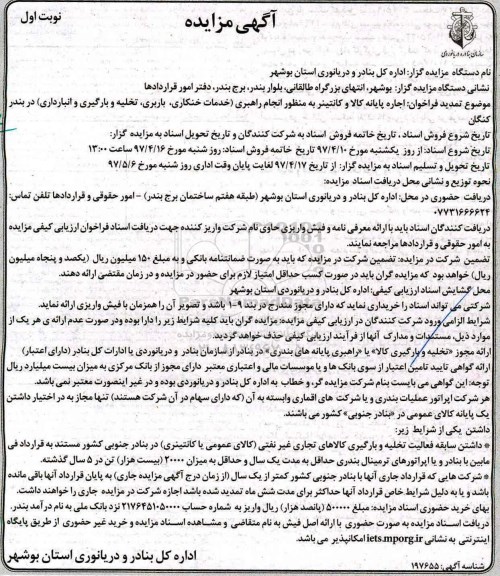 آگهی مزایده
نوبت اول
سازمان بنادر و دریانوردی
نام دستگاه مزایده گزار: اداره کل بنادر و دریانوردی استان بوشهر
نشانی دستگاه مزایده گزار: بوشهر، انتهای بزرگراه طالقانی، بلوار بندر، برج بندر، دفتر امور قراردادها
موضوع تمدید فراخوان: اجاره پایانه کالا و کانتینر به منظور انجام راهبری (خدمات خنکاری، باربری، تخلیه و بارگیری و انبارداری) در بندر
کنگان
تاریخ شروع فروش اسناد، تاریخ خاتمه فروش اسناد به شرکت کنندگان و تاریخ تحویل اسناد به مزایده گزار:
تاریخ شروع اسناد: از روز یکشنبه مورخ ۹۷/۴/۱۰ تاریخ خاتمه فروش اسناد: روز شنبه مورخ ۹۷/۴/۱۶ ساعت ۱۳:۰۰
تاریخ تحویل و تسلیم اسناد به مزایده گزار: از تاریخ ۹۷/۴/۱۷ لغایت پایان وقت اداری روز شنبه مورخ ۹۷/۵/۶
نحوه توزیع و نشانی محل دریافت اسناد مزایده:
دریافت حضوری در محل: اداره کل بنادر و دریانوردی استان بوشهر (طبقه هفتم ساختمان برج بندر) – امور حقوقی و قراردادها تلفن تماس:
۰۷۷۳۱۶۶۶۲۴
دریافت کنندگان اسناد باید با ارائه معرفی نامه و فیش واریزی حاوی نام شرکت واریز کننده جهت دریافت اسناد فراخوان ارزیابی کیفی مزایده
به امور حقوقی و قراردادها مراجعه نمایند.
تضمین شرکت در مزایده: تضمین شرکت در مزایده که باید به صورت ضمانتنامه بانکی و به مبلغ ۱۵۰ میلیون ریال (یکصد و پنجاه میلیون
ریال) خواهد بود که مزایده گران باید در صورت کسب حداقل امتیاز لازم برای حضور در مزایده و در زمان مقتضی ارائه دهند.
محل گشایش اسناد ارزیابی کیفی: اداره کل بنادر و دریانوردی استان بوشهر
شرکتی می تواند اسناد را خریداری نماید که دارای مجوز مندرج در بند ۹-۱ باشد و تصویر آن را همزمان با فیش واریزی ارائه نماید.
شرایط الزامی ورود شرکت کنندگان در ارزیابی کیفی مزایده: مزایده گران باید کلیه شرایط زیر را دارا بوده ودر صورت عدم ارائه ی هر یک از
موارد ذیل، مستندات و مدارک آنها از فرآیند ارزیابی کیفی حذف خواهد گردید.
ارائه مجوز «تخلیه و بارگیری کالا» یا «راهبری پایانه های بندری» در بنادر از سازمان بنادر و دریانوردی یا ادارات کل بنادر (دارای اعتبار)
ارائه گواهی تایید تامین اعتبار از سوی بانک ها و یا موسسات مالی و اعتباری معتبر دارای مجوز از بانک مرکزی به میزان بیست میلیارد ریال
توجه: این گواهی می بایست بنام شرکت مزایده گر، و خطاب به اداره کل بنادر و دریانوردی بوده و در غیر اینصورت معتبر نمی باشد.
هر شرکت اپراتور عملیات بندری و یا شرکت های اقماری وابسته به آن (که دارای سهام در آن شرکت هستند) تنها مجاز به در اختیار داشتن
یک پایانه کالای عمومی در «بنادر جنوبی» کشور می باشند.
داشتن یکی از شرایط زیر:
* داشتن سابقه فعالیت تخلیه و بارگیری کالاهای تجاری غیر نفتی (کالای عمومی یا کانتینری) در بنادر جنوبی کشور مستند به قرارداد فی
مابین با بنادر و یا اپراتورهای ترمینال بندری حداقل به مدت یک سال و حداقل به میزان ۲۰۰۰۰ (بیست هزار) تن در ۵ سال گذشته.
* شرکت هایی که قرارداد جاری آنها با بنادر جنوبی کشور کمتر از یک سال (از زمان درج آگهی مزایده جاری) به پایان قرارداد آنها باقی مانده
باشد و یا به دلیل شرایط خاص قرارداد آنها حداکثر برای مدت شش ماه تمدید شده باشد اجازه شرکت در مزایده جاری را خواهند داشت.
بهای خرید حضوری اسناد مزایده: مبلغ ۵۰۰۰۰۰ (پانصد هزار) ریال واریز به شماره حساب ۲۱۷۶۴۵۱۰۵۰۰۰ نزد بانک ملی به نام درآمد بندر.
دریافت اسناد مزایده به صورت حضوری با ارائه اصل فیش به نام متقاضی و مشاهده اسناد مزایده و خرید غیر حضوری از طریق پایگاه
اینترنتی به نشانی iets.mporg.ir امکانپذیر می باشد.
اداره کل بنادر و دریانوردی استان بوشهر
شناسه آگهی: ۱۹۷۶۵۵